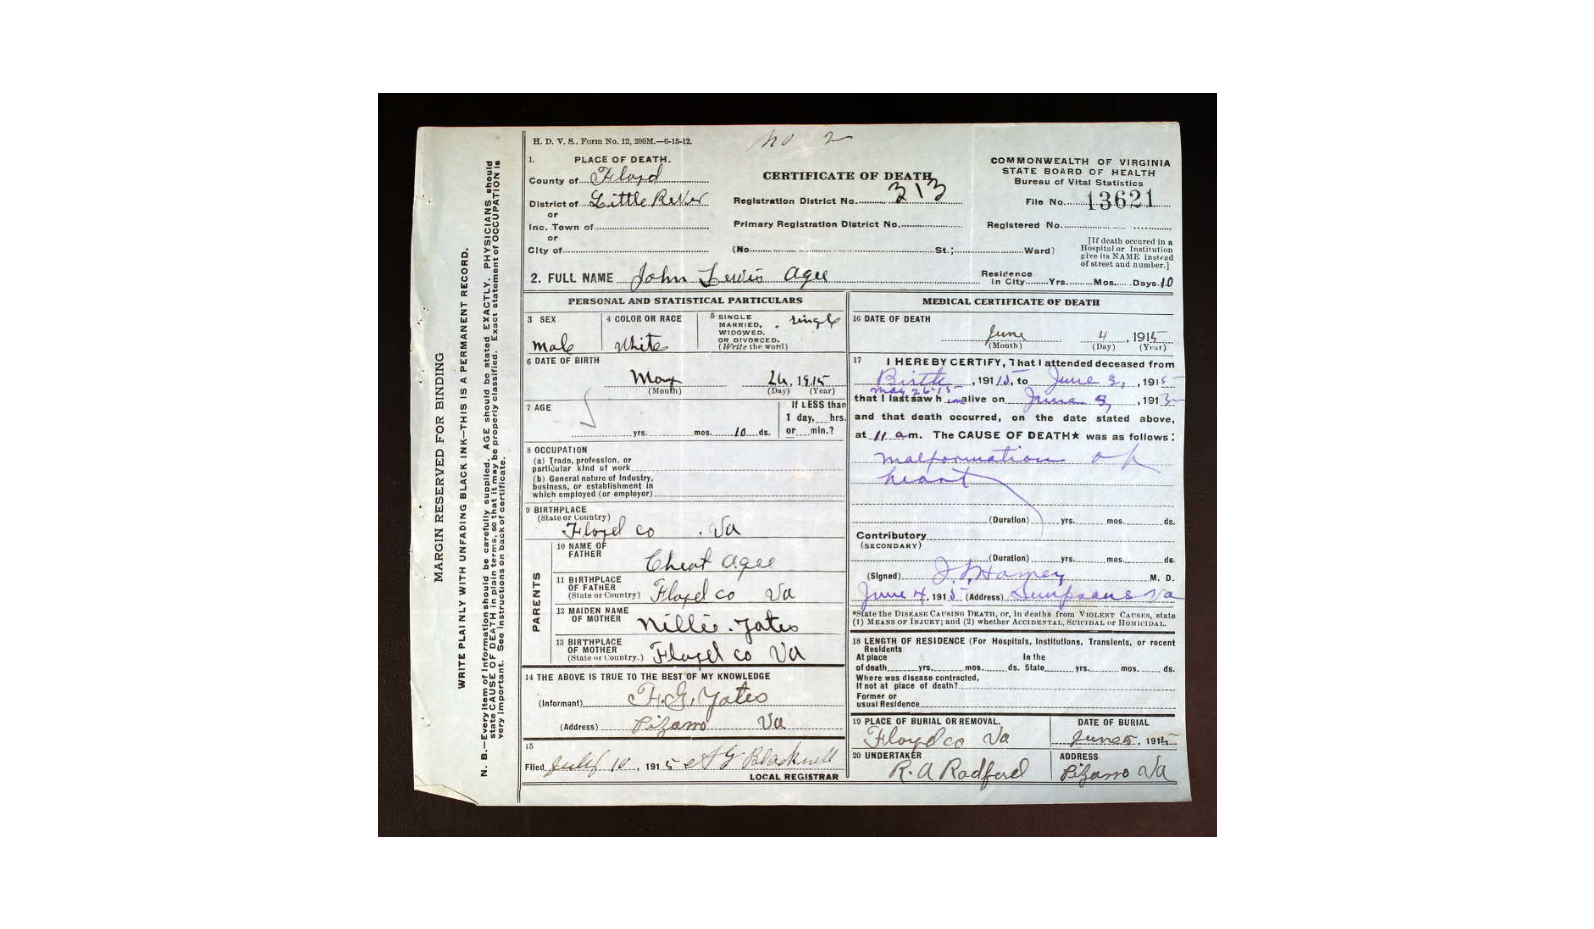 H. D. V. S., Form No. 12, 200M.—6-15-12.
No 2
1. PLACE OF DEATH.
County of Floyd
District of Little River
or
Inc. Town of
or
City of
CERTIFICATE OF DEATH
Registration District No. 313
Primary Registration District No.
(No. St.; Ward)
COMMONWEALTH OF VIRGINIA
STATE BOARD OF HEALTH
Bureau of Vital Statistics
File No. 13621
Registered No.
[If death occured in a
Hospital or Institution
give its NAME instead
of street and number.]
2. FULL NAME John Lewis Agee
Residence
In City Yrs. Mos. Days. 10
PERSONAL AND STATISTICAL PARTICULARS
3 SEX
male
4 COLOR OR RACE
White
5 SINGLE
MARRIED,
WIDOWED,
OR DIVORCED.
(Write the word)
single
6 DATE OF BIRTH
May 26, 1915
(Month) (Day) (Year)
7 AGE
yrs. mos. 10 ds.
If LESS than
1 day, hrs.
or min.?
8 OCCUPATION
(a) Trade, profession, or
particular kind of work
(b) General nature of Industry,
business, or establishment in
which employed (or employer)
9 BIRTHPLACE
(State or Country)
Floyd co Va
PARENTS
10 NAME OF
FATHER
Cheat Agee
11 BIRTHPLACE
OF FATHER
(State or Country)
Floyd co Va
12 MAIDEN NAME
OF MOTHER
Nillie Yates
13 BIRTHPLACE
OF MOTHER
(State or Country.)
Floyd co Va
14 THE ABOVE IS TRUE TO THE BEST OF MY KNOWLEDGE
(Informant) F. G. Yates
(Address) Pizarro Va
15
Filed July 10, 1915
LOCAL REGISTRAR
MEDICAL CERTIFICATE OF DEATH
16 DATE OF DEATH
June 4, 1915
(Month) (Day) (Year)
17 I HEREBY CERTIFY, That I attended deceased from
Birth, 1915, to June 3, 1915
May 26-15
that I last saw him alive on June 3, 1915
and that death occurred, on the date stated above,
at 11 a m. The CAUSE OF DEATH★ was as follows:
malformation of
heart
(Duration) yrs. mos. ds.
Contributory
(SECONDARY)
(Duration) yrs. mos. ds.
(Signed) M. D.
June 4, 1915 (Address) Simpsons Va
*State the DISEASE CAUSING DEATH, or, in deaths from VIOLENT CAUSES, state
(1) MEANS OF INJURY; and (2) whether ACCIDENTAL, SUICIDAL or HOMICIDAL.
18 LENGTH OF RESIDENCE (For Hospitals, Institutions, Transients, or recent
Residents
At place In the
of death yrs. mos. ds. State yrs. mos. ds.
Where was disease contracted,
If not at place of death?
Former or
usual Residence
19 PLACE OF BURIAL OR REMOVAL.
Floyd co Va
DATE OF BURIAL
June 5, 1915
20 UNDERTAKER
R. A Radford
ADDRESS
Pizarro Va
MARGIN RESERVED FOR BINDING
WRITE PLAINLY WITH UNFADING BLACK INK—THIS IS A PERMANENT RECORD.
N. B.—Every item of information should be carefully supplied. AGE should be stated EXACTLY. PHYSICIANS should
state CAUSE OF DEATH in plain terms, so that it may be properly classified. Exact statement of OCCUPATION is
very important. See instructions on back of certificate.